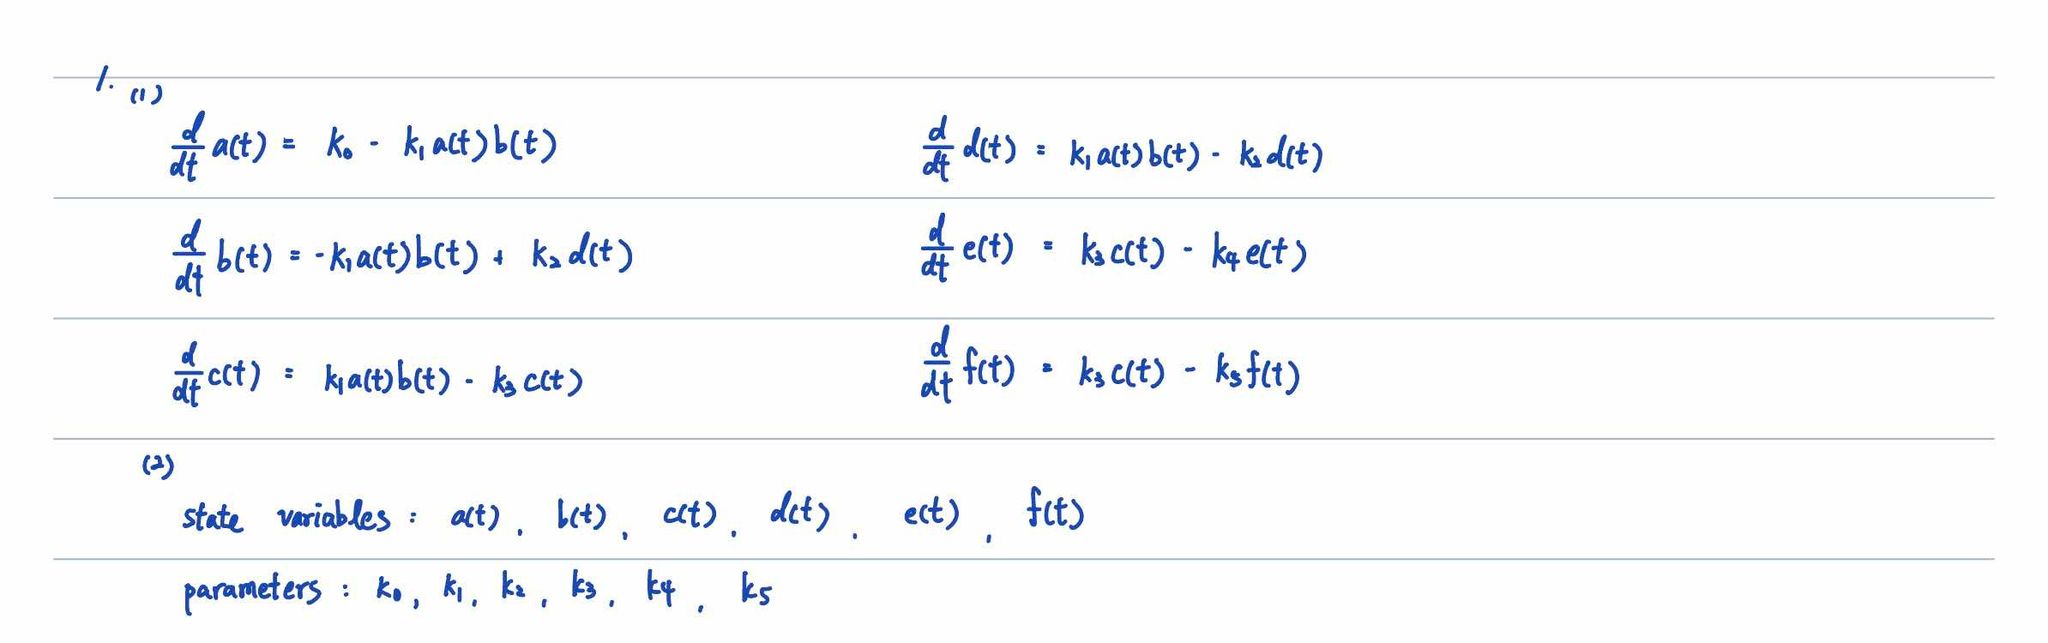 1. (1)
d/dt a(t) = k₀ - k₁a(t)b(t)    d/dt d(t) = k₁a(t)b(t) - k₂d(t)
d/dt b(t) = -k₁a(t)b(t) + k₂d(t)    d/dt e(t) = k₃c(t) - k₄e(t)
d/dt c(t) = k₁a(t)b(t) - k₃c(t)    d/dt f(t) = k₃c(t) - k₅f(t)
(2)
state variables : a(t), b(t), c(t), d(t), e(t), f(t)
parameters : k₀, k₁, k₂, k₃, k₄, k₅